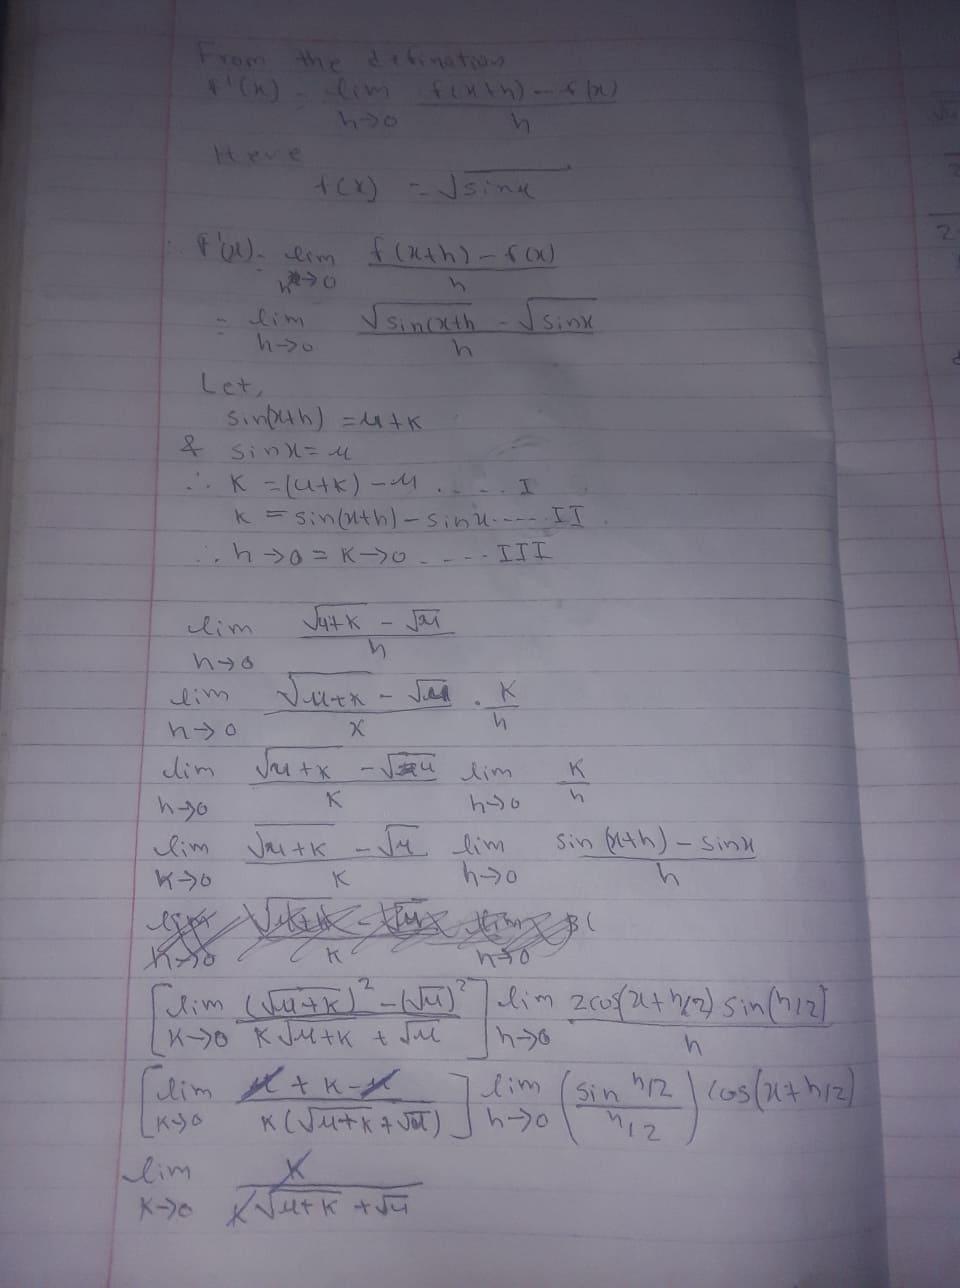 From the defination
f'(x) = lim h→0 f(x+h) - f(x) / h
Here
f(x) = √sinx
∴ f'(x) = lim h→0 f(x+h) - f(x) / h
= lim h→0 √sin(x+h - √sinx / h
Let,
sin(x+h) = u+k
& sinx = u
∴ k = (u+k) - u ..... I
k = sin(x+h) - sinx ..... II
∴ h→0 = k→0 ..... III
lim h→0 √u+k - √u / h
lim h→0 √u+k - √u / k . k/h
lim h→0 √u+k - √u / k lim h→0 k/h
lim k→0 √u+k - √u / k lim h→0 sin(x+h) - sinx / h
[lim k→0 (√u+k)² - (√u)² / k√u+k + √u] lim h→0 2cos(x+h/2) sin(h/2) / h
[lim k→0 u + k - u / k(√u+k + √u)] lim h→0 (sin h/2 / h/2) cos(x+h/2)
lim k→0 k / k√u+k + √u